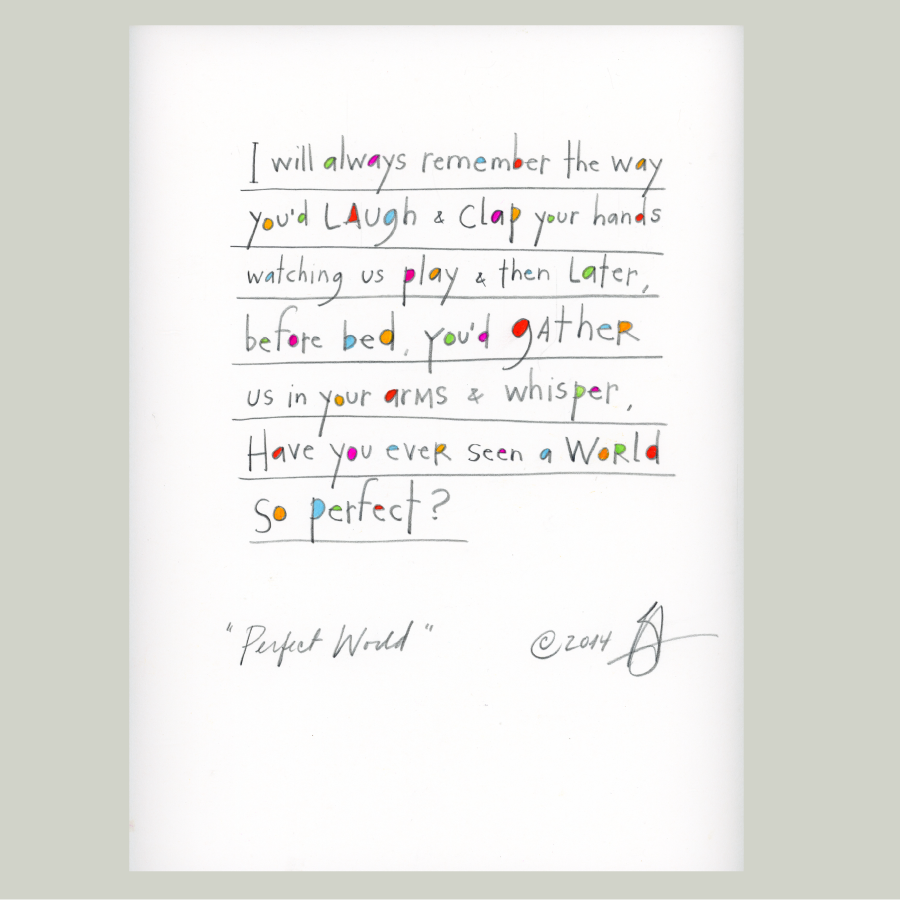 I will always remember the way
you'd LAugh & Clap your hands
watching us play & then Later,
before bed, you'd gAtheR
us in your arMs & whisper,
Have you eveR seen a WoRld
so perfect?
"Perfect World" © 2014